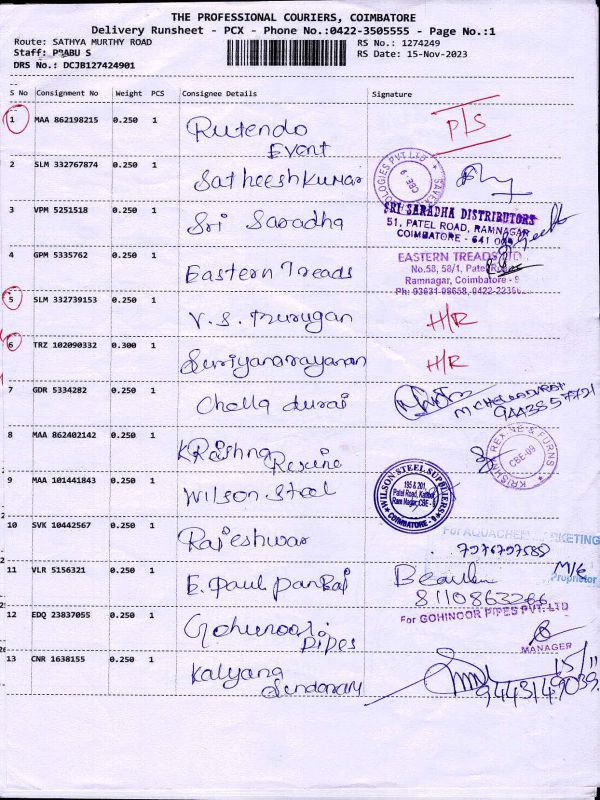 THE PROFESSIONAL COURIERS, COIMBATORE
Delivery Runsheet - PCX - Phone No.:0422-3505555 - Page No.:1
Route: SATHYA MURTHY ROAD RS No.: 1274249
Staff: PRABU S RS Date: 15-Nov-2023
DRS No.: DCJB127424901
S No Consignment No Weight PCS Consignee Details Signature
1 MAA 862198215 0.250 1 Rutendo P/S
Event
2 SLM 332767874 0.250 1 Satheeshkumar
CBE-9
3 VPM 5251518 0.250 1 Sri Saradha
SRI SARADHA DISTRIBUTORS
51, PATEL ROAD, RAMNAGAR
COIMBATORE - 641 009
4 GPM 5335762 0.250 1 Eastern Treads
EASTERN TREADS LTD
No.58, 58/1, Patel Road
Ramnagar, Coimbatore - 9
5 SLM 332739153 0.250 1 V.S. Murugan H/R
6 TRZ 102090332 0.300 1 Suriyanarayanan H/R
7 GDR 5334282 0.250 1 Chella durai
M CHELLADURAI
9443857721
8 MAA 862402142 0.250 1 KRaishna
Rexine
KRISHNA REXINE & FURNS
CBE-09
9 MAA 101441843 0.250 1 Wilson Steel
WILSON STEEL SUPPLIERS
195 & 201,
Patel Road, Kattoor
Ram Nagar, CBE - 9
COIMBATORE - 9
10 SVK 10442567 0.250 1 Rajeshwar
For AQUACHEM MARKETING
Proprietor
11 VLR 5156321 0.250 1 E. Paul Pankaj
M/6
8110863266
12 EDQ 23837055 0.250 1 Gohinoor
Pipes
For GOHINOOR PIPES PVT. LTD
MANAGER
13 CNR 1638155 0.250 1 Kalyana
Sundaram
15/11
9443149039